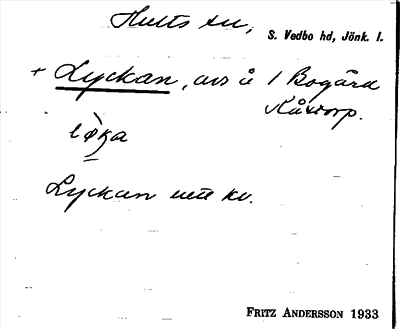 Hults sn, S. Vedbo hd, Jönk. l.
+ Lyckan, avs å 1 Bogård
Kåxtorp.
Lyckan utt kv.
FRITZ ANDERSSON 1933